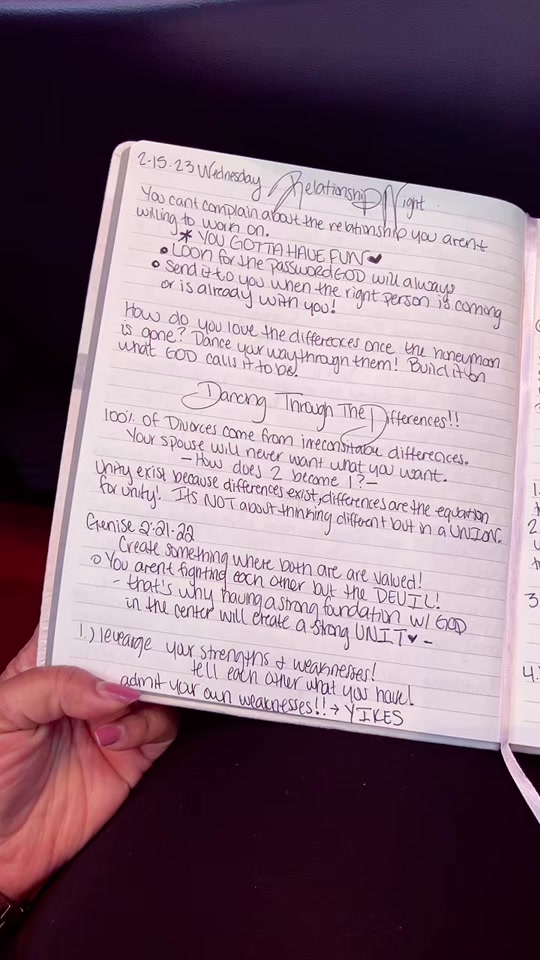 2-15-23 Wednesday Relationship Night
You cant complain about the relationship you arent
willing to work on.
* YOU GOTTA HAVE FUN ♥
• Loon for the password GOD will always
• send it to you when the right person is coming
or is already with you!
How do you love the differences once the honeymoon
is gone? Dance your way through them! Build it on
what GOD calls it to be.
Dancing Through The Differences!!
100% of Divorces come from irreconsitable differences.
Your spouse will never want what you want.
- How does 2 become 1? -
Unity exist because differences exist, differences are the equation
for unity! Its NOT about thinking different but in a UNION.
Genise 2:21-22
Create something where both are are valued!
○ You arent fighting each other but the DEVIL!
- that's why having a strong foundation w/ GOD
in the center will create a strong UNIT ♥ -
1.) levearge your strengths & weaknesses!
tell each other what you have!
admit your own weaknesses!! → YIKES
1.
2.
3
4.